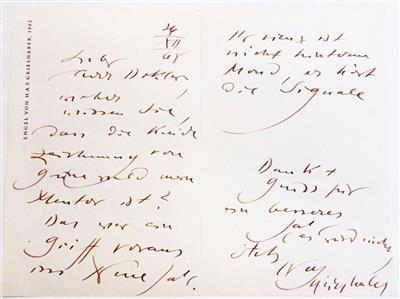 ENGEL VON H.A.P. GRIESHABER, 1962
24
XII
68
Lieber
Herr Doktor,
woher
wissen Sie,
dass die Kreide
zeichnung von
Grünewald mein
Mentor ist?
Das war ein
Griff voraus
ins Neue Jahr.
Ihr
ist
nicht hinterm
Mond, er hört
die Signale
Dank +
Gruss für
ein besseres
Jahr
(es wird nicht
stets
Ihr
Grieshaber